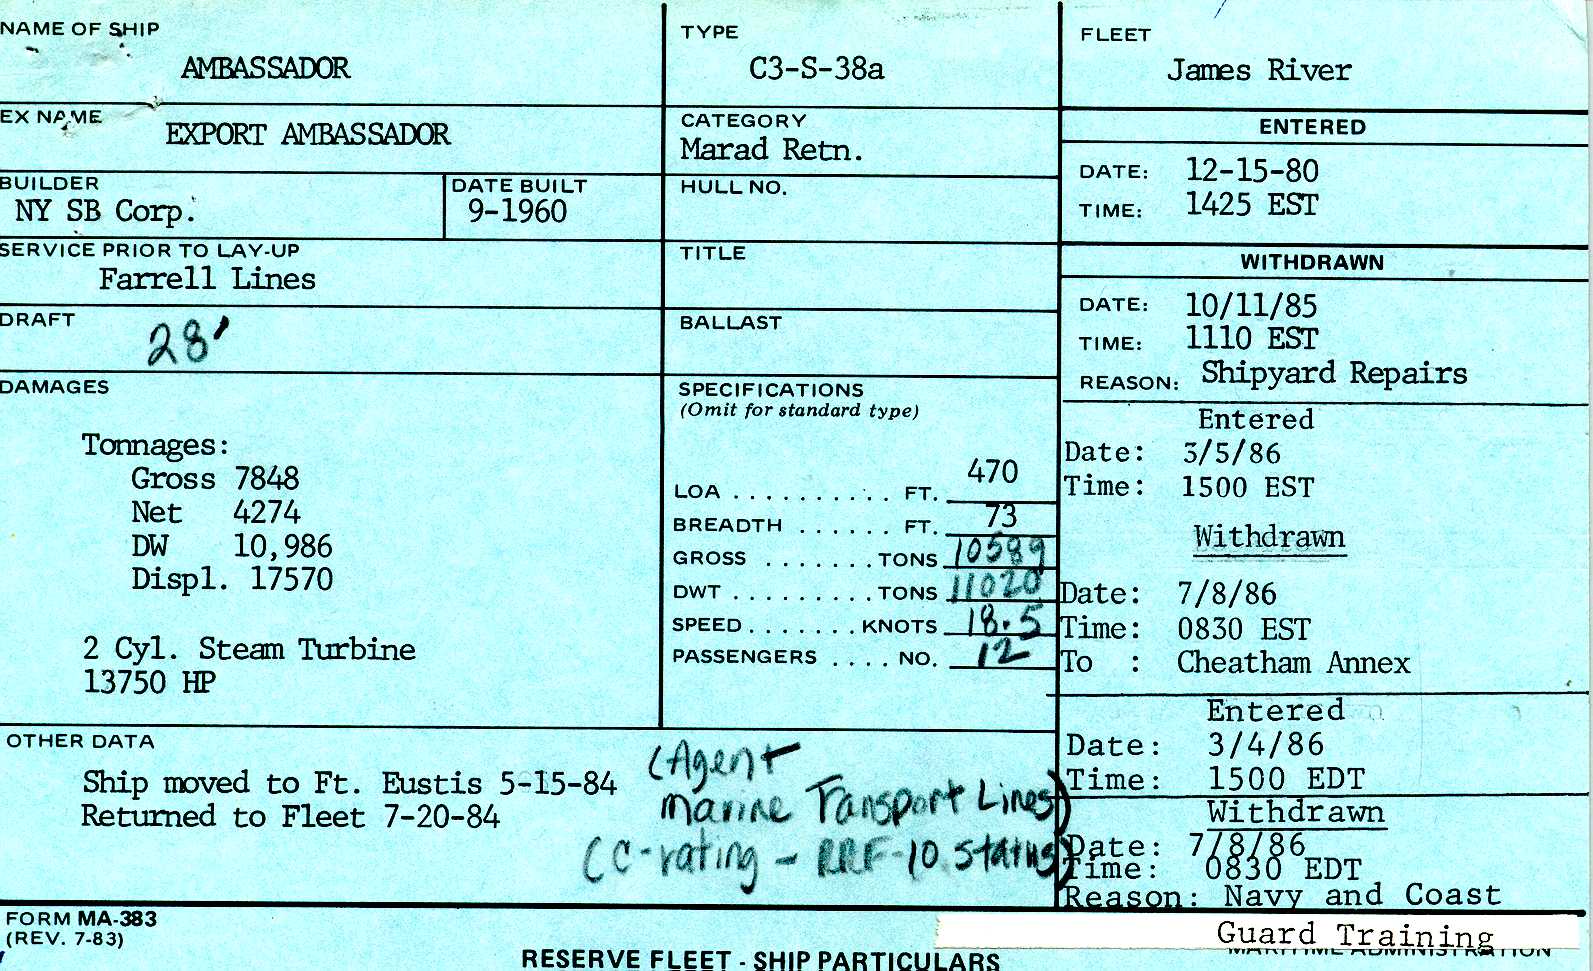 NAME OF SHIP
AMBASSADOR
TYPE
C3-S-38a
FLEET
James River
EX NAME
EXPORT AMBASSADOR
CATEGORY
Marad Retn.
ENTERED
DATE: 12-15-80
TIME: 1425 EST
BUILDER
NY SB Corp.
DATE BUILT
9-1960
HULL NO.
SERVICE PRIOR TO LAY-UP
Farrell Lines
TITLE
WITHDRAWN
DATE: 10/11/85
TIME: 1110 EST
REASON: Shipyard Repairs
DRAFT
28'
BALLAST
DAMAGES
Tonnages:
Gross 7848
Net 4274
DW 10,986
Displ. 17570
2 Cyl. Steam Turbine
13750 HP
SPECIFICATIONS
(Omit for standard type)
LOA .......... FT. 470
BREADTH ...... FT. 73
GROSS ....... TONS 10589
DWT ......... TONS 11020
SPEED ....... KNOTS 18.5
PASSENGERS .... NO. 12
Entered
Date: 3/5/86
Time: 1500 EST
Withdrawn
Date: 7/8/86
Time: 0830 EST
To : Cheatham Annex
Entered
Date: 3/4/86
Time: 1500 EDT
Withdrawn
Date: 7/8/86
Time: 0830 EDT
Reason: Navy and Coast
Guard Training
OTHER DATA
Ship moved to Ft. Eustis 5-15-84
Returned to Fleet 7-20-84
(Agent
Marine Transport Lines)
(C-rating - RRF-10 status)
FORM MA-383
(REV. 7-83)
RESERVE FLEET - SHIP PARTICULARS
MARITIME ADMINISTRATION